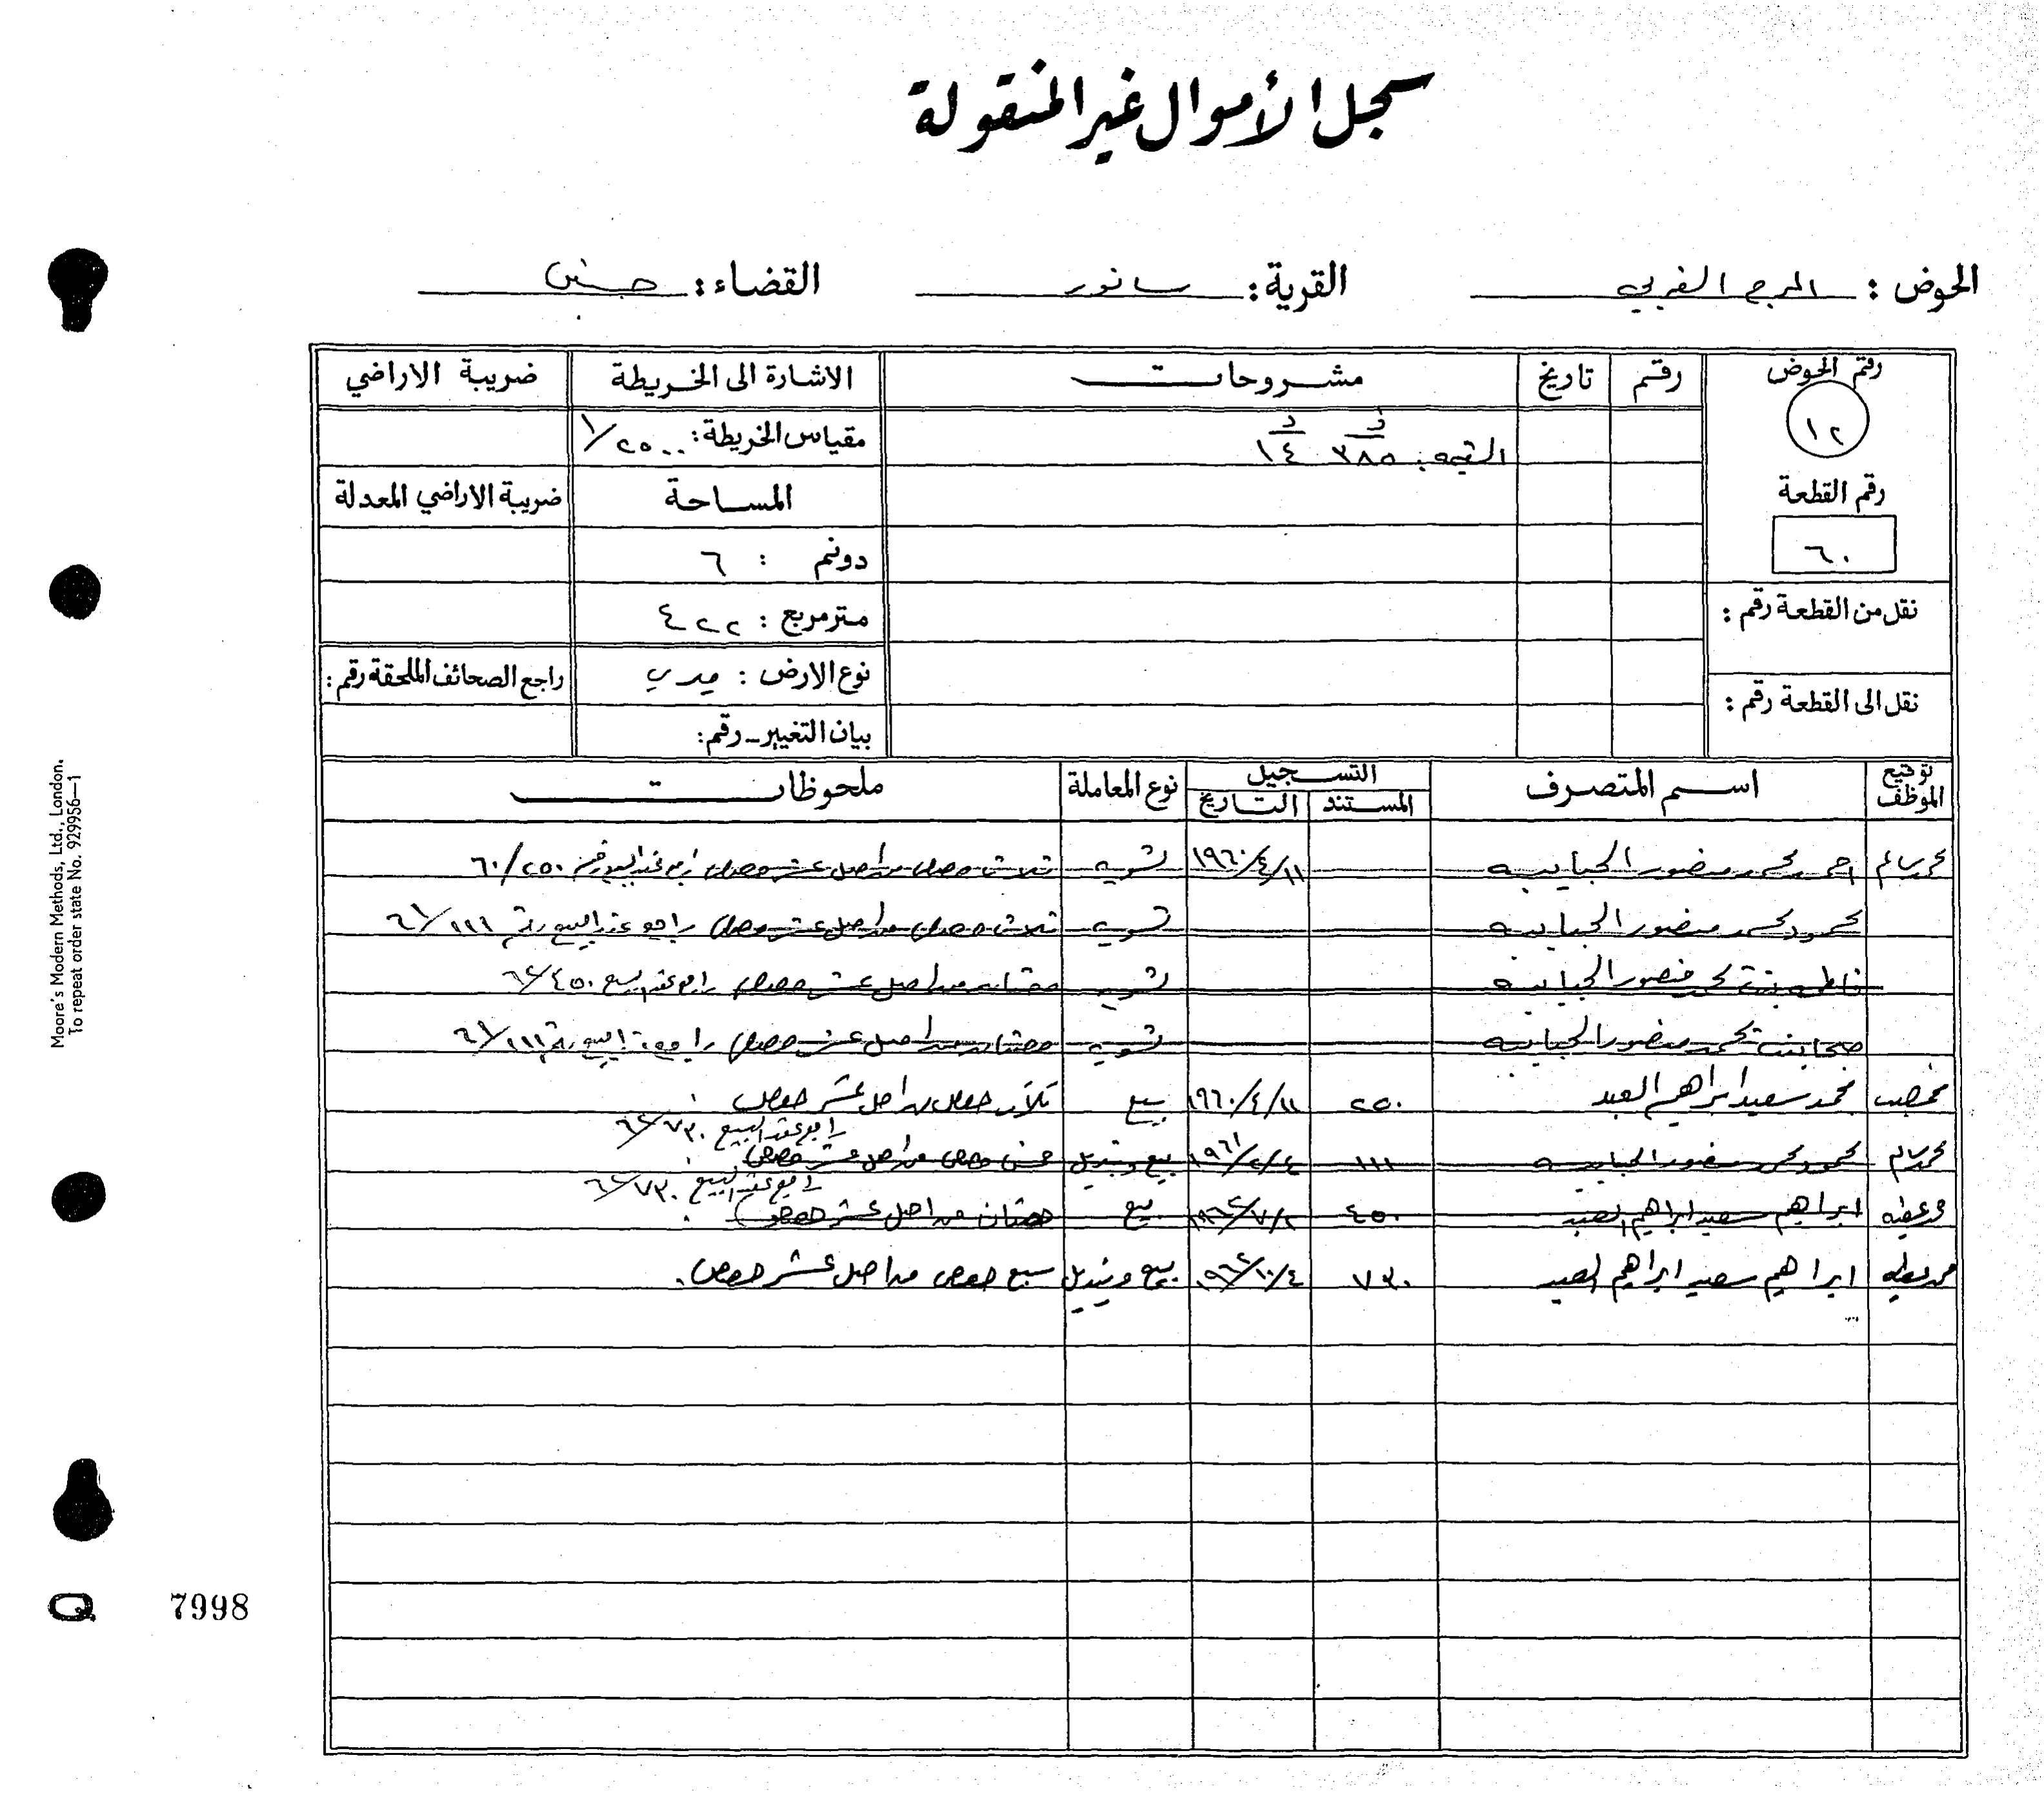 سجل الأموال غير المنقولة
الحوض : المرج الغربي القرية : سانور القضاء : جنين
رقم الحوض رقم تاريخ مشروحات الاشارة الى الخريطة ضريبة الاراضي
١٢
القيمه ٣٨٥ د ١٤ د مقياس الخريطة : ١/٢٥٠٠
رقم القطعة المساحة ضريبة الاراضي المعدلة
٦٠
دونم : ٦
نقل من القطعة رقم :
متر مربع : ٤٢٢
نوع الارض : ميري راجع الصحائف الملحقة رقم :
نقل الى القطعة رقم :
بيان التغيير - رقم :
توقيع الموظف اسم المتصرف التسجيل نوع المعاملة ملحوظات
المستند التاريخ
احمد محمد منصور الحبايبه ١٩٦٠/٤/١١ تسويه ثلاث حصص من اصل عشر حصص راجع عقد البيع رقم ٦٠/٢٥٠
محمود محمد منصور الحبايبه تسويه ثلاث حصص من اصل عشر حصص راجع عقد البيع رقم ٦١/١١١
فاطمه بنت محمد منصور الحبايبه تسويه حصتان من اصل عشر حصص راجع عقد البيع ٦٢/٤٥٠
بنت محمد منصور الحبايبه تسويه حصتان من اصل عشر حصص راجع عقد البيع رقم ٦١/١١١
محمد سعيد ابراهيم العبد ٢٥٠ ١٩٦٠/٤/١١ بيع ثلاث حصص من اصل عشر حصص
راجع عقد البيع ٦٢/٧٣٠
محمود محمد منصور الحبايبه ١١١ ١٩٦١/٢/٤ بيع وتبديل خمس حصص من اصل عشر حصص
راجع عقد البيع ٦٢/٧٣٠
ابراهيم سعيد ابراهيم العبد ٤٥٠ ١٩٦٢/٧/٢ بيع حصتان من اصل عشر حصص
ابراهيم سعيد ابراهيم العبد ٧٣٠ ١٩٦٢/١٠/٤ بيع وتبديل سبع حصص من اصل عشر حصص.
Moore's Modern Methods, Ltd., London.
To repeat order state No. 929956—1
Q 7998